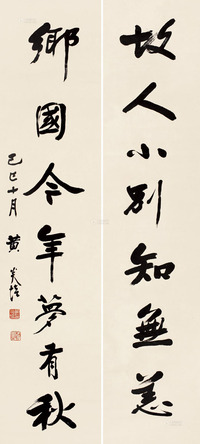 故人小别知無恙
鄉國今年夢有秋
己巳十月 黄